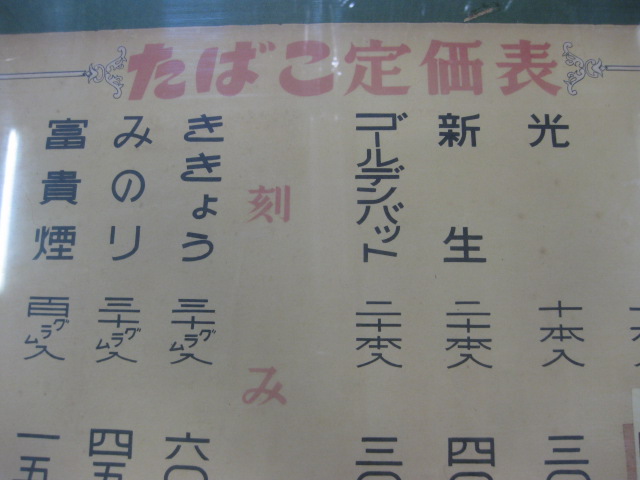 たばこ定価表
光 十本入 三〇
新生 二十本入 四〇
ゴールデンバット 二十本入 三〇
刻み
ききょう 三十グラム入 六〇
みのり 三十グラム入 四五
富貴煙 百グラム入 一五